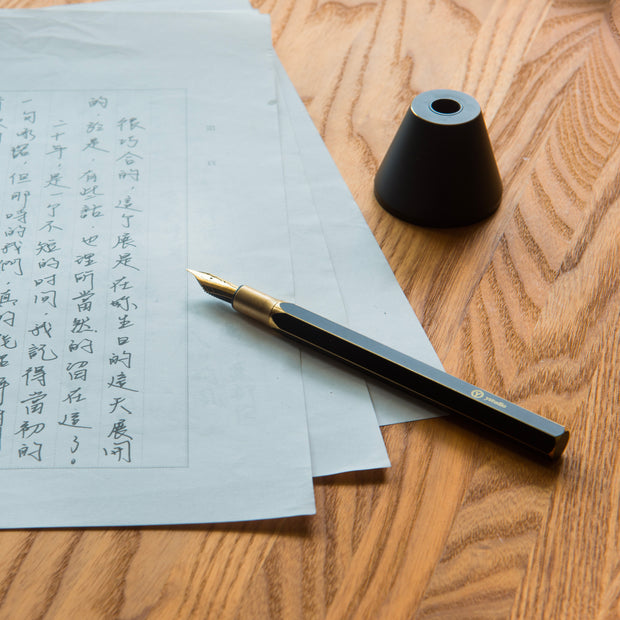 很巧合的，這个展是在妳生日的這天展開
的，於是，有些話，也理所當然的留在這了。
二十年，是一个不短的時間，我記得當初的
一句承諾，但那時的我們，真的
ystudio